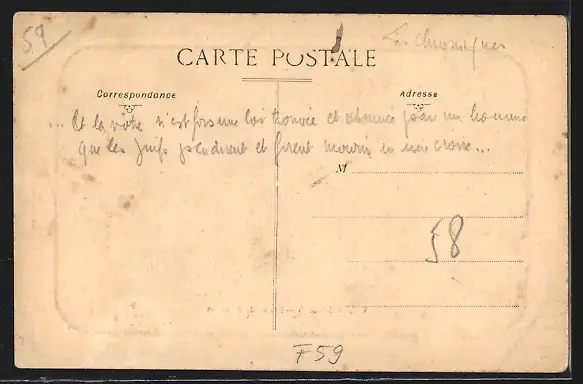 59
Les chroniques
CARTE POSTALE
Correspondance
Adresse
... Et la vôtre n'est fors une loi trouvée et par un homme
que les Juifs pendirent et firent mourir en une croix...
M
58
F59